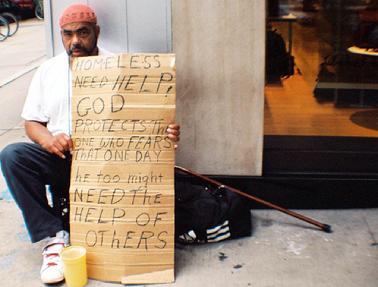 HOMELESS
NEED HELP,
GOD
PROTECTS The
ONE WHO FEARS
THAT ONE DAY
he too might
NEED The
HELP OF
OThERS